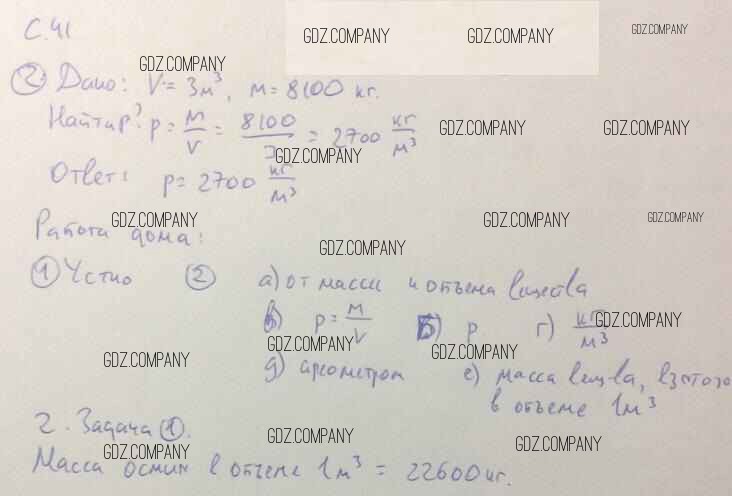 GDZ.COMPANY GDZ.COMPANY GDZ.COMPANY
С. 41
GDZ.COMPANY
② Дано: V = 3м³, м = 8100 кг.
Найти p? p = м/V = 8100/3 = 2700 кг/м³
GDZ.COMPANY GDZ.COMPANY
GDZ.COMPANY
Ответ: p = 2700 кг/м³
GDZ.COMPANY GDZ.COMPANY GDZ.COMPANY
Работа дома:
GDZ.COMPANY
① Устно ② а) от массы и объема вещества
в) p = м/V Б) p г) кг/м³
GDZ.COMPANY
GDZ.COMPANY GDZ.COMPANY GDZ.COMPANY
д) ареометром е) масса вещ-ва, взятого
в объеме 1м³
2. Задача ①.
GDZ.COMPANY GDZ.COMPANY GDZ.COMPANY
Масса осмия в объеме 1м³ = 22600 кг.